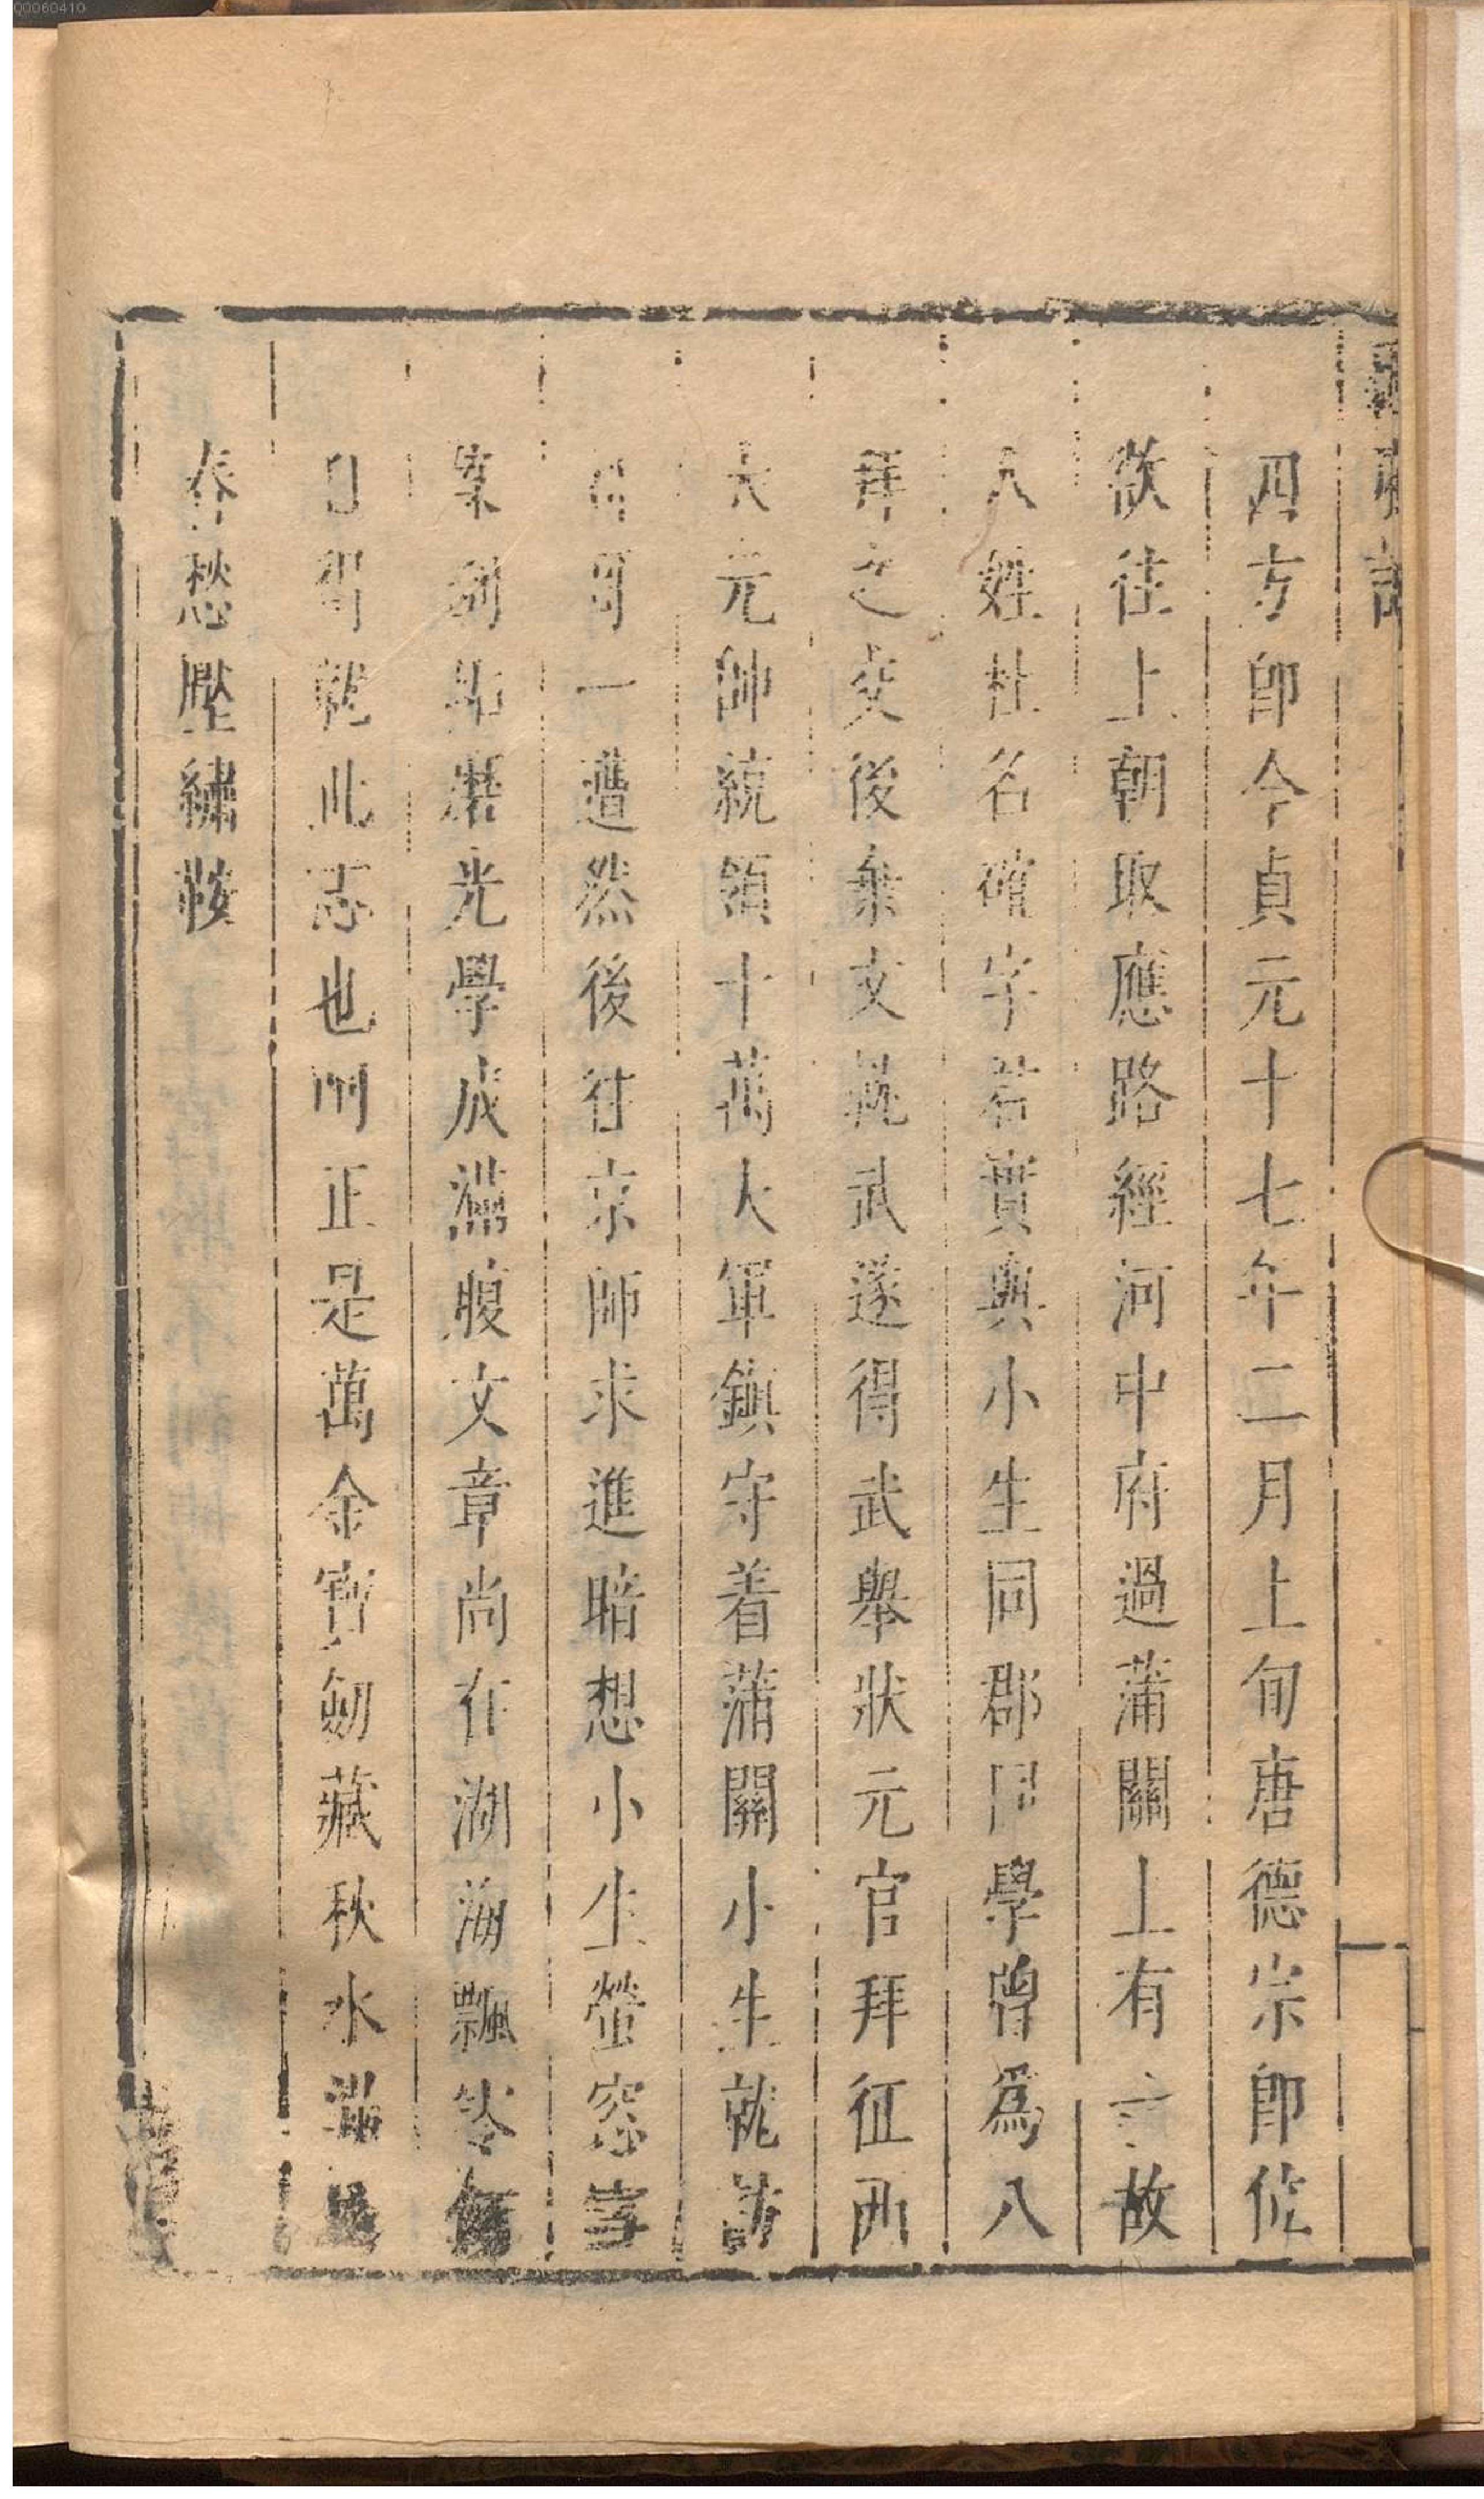 Q0060410
四方即今貞元十七年二月上旬唐德宗即位
欲往上朝取應路經河中府過蒲關上有一故
人姓杜名確字君實與小生同郡同學曾爲八
拜之交後棄文就武遂得武舉狀元官拜征西
大元帥統領十萬大軍鎮守着蒲關小生就訪
哥哥一遭然後往京師求進暗想小生螢窓雪
案刮垢磨光學成滿腹文章尚在湖海飄零何
日得就此志也呵正是萬金寶劒藏秋水滿馬
春愁壓繡鞍